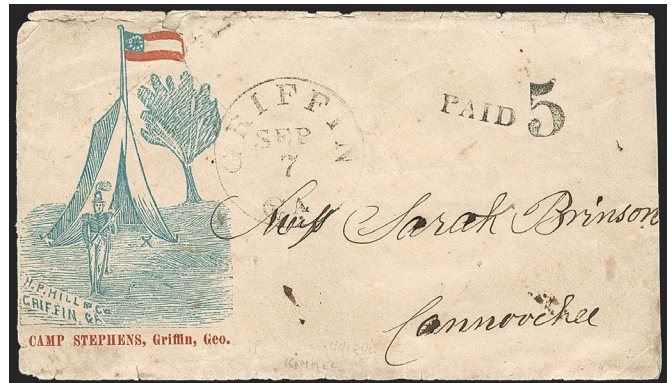 GRIFFIN
SEP
7
GA
PAID 5
Miss Sarah Brinson
Cannoochee
H.P. HILL & Co
GRIFFIN. GA
CAMP STEPHENS, Griffin, Geo.
UNIQUE
KIMMEL